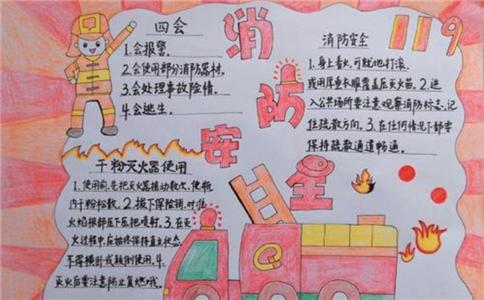 消防安全
119
四会
1.会报警.
2.会使用部分消防器材.
3.会处理事故险情.
4.会逃生.
消防安全
1.身上着火,可就地打滚,
或用厚重衣服覆盖压灭火苗.2.进
入公共场所要注意观察消防标志,记
住疏散方向.3.在任何情况下都要
保持疏散通道畅通.
干粉灭火器使用
1.使用前,先把灭火器摇动数次,使瓶
内干粉松散.2.拔下保险销,对准
火焰根部压下压把喷射.3.在灭
火过程中,应始终保持直立状态,
不得横卧或颠倒使用.4.
灭火后要注意防止复燃哦.